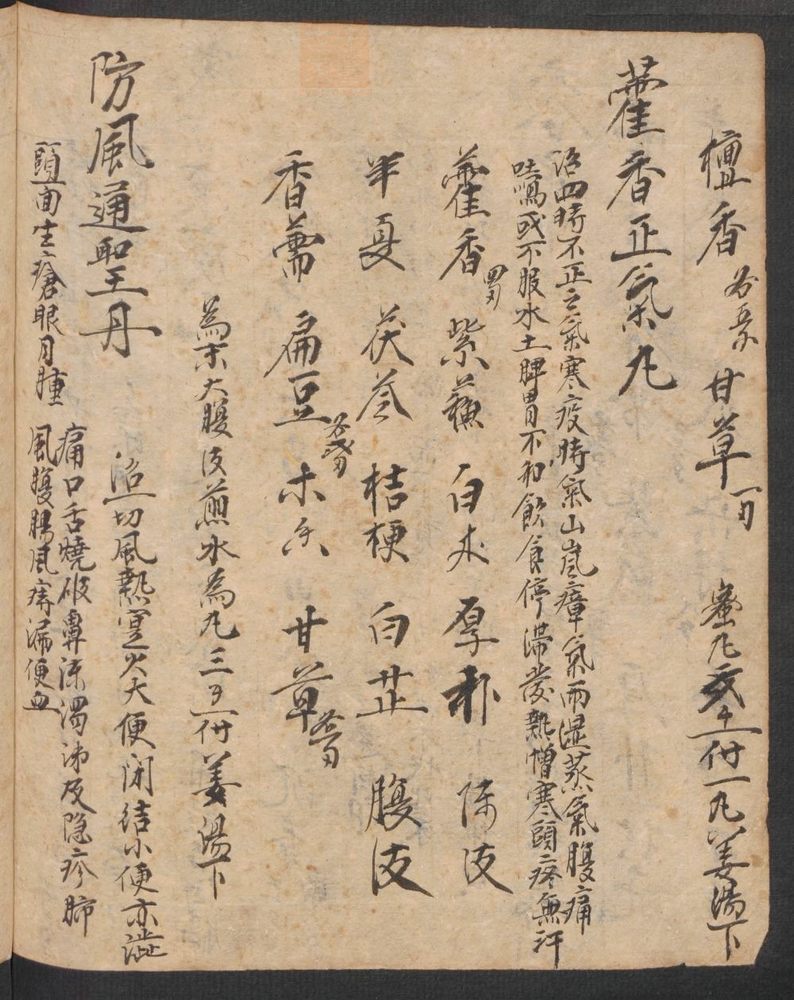 檀香 各五錢 甘草 一刃 蜜丸 一丸 姜湯下
藿香正氣丸
治四時不正之氣寒疫時氣山嵐瘴氣雨湿蒸氣腹痛
吐瀉或不服水土脾胃不和飲食停滞發熱憎寒頭疼無汗
藿香 四刃 紫蘇 白朮 厚朴 陳皮
半夏 茯苓 桔梗 白芷 腹皮
香薷 扁豆 木香 甘草
為末大腹皮煎水為丸三个一付姜湯下
防風通聖丹
治一切風熱 火大便闭结小便赤澁
頭面生瘡眼目腫痛口舌燒破鼻流濁涕及隐疹肺
風 腸風痔漏便血